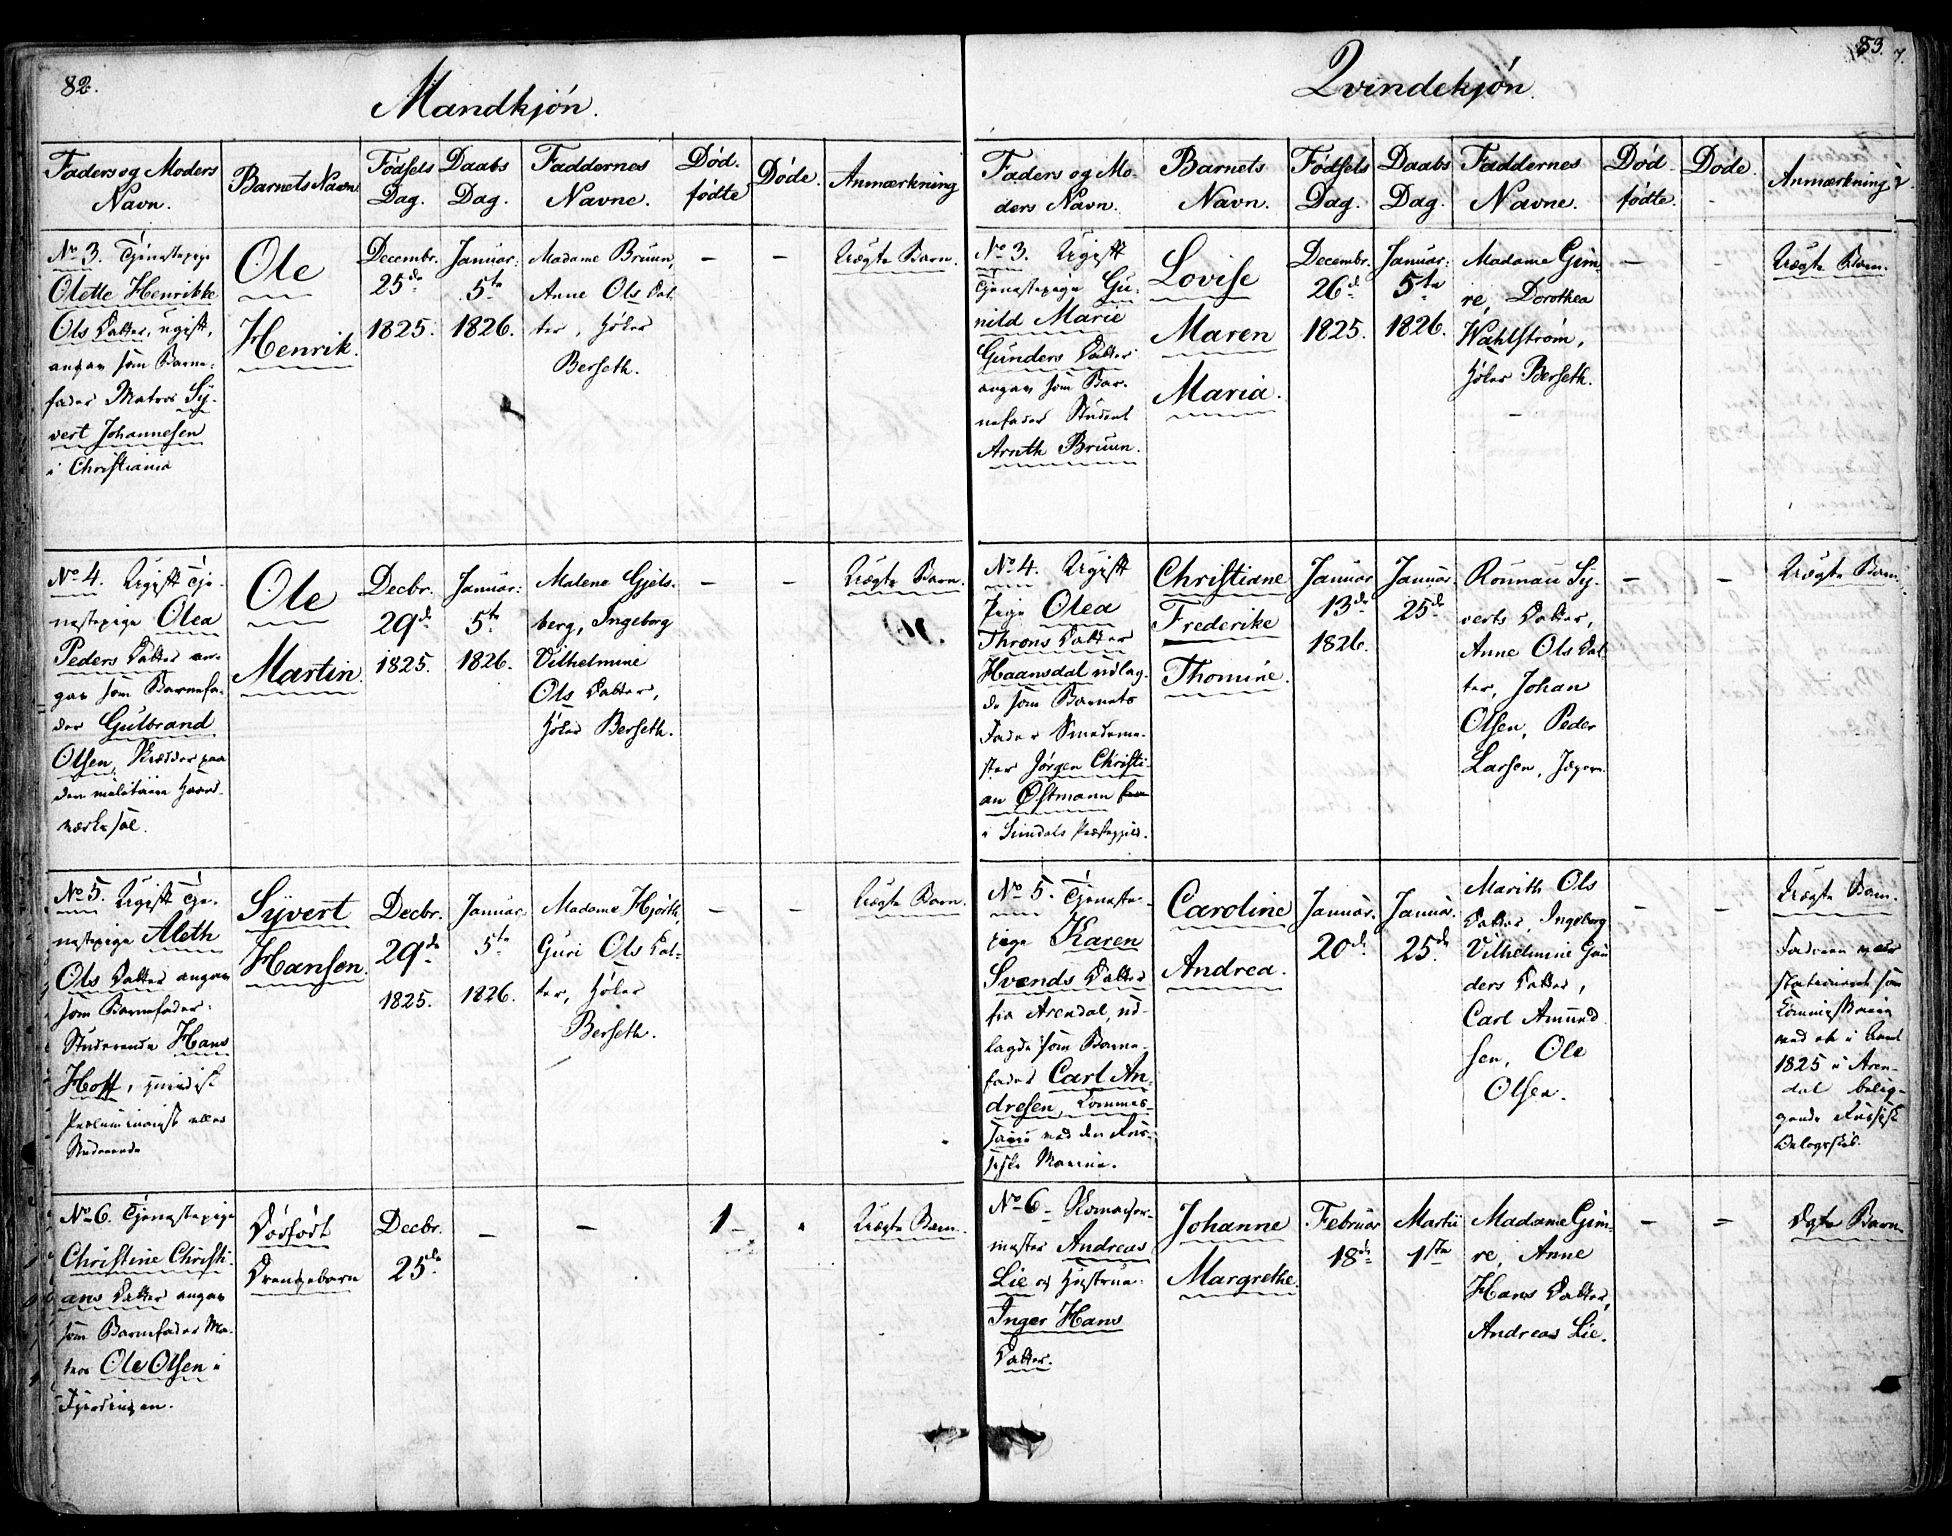 82.
Mandkjón.
Faders og Moders
Navn.
Barnets Navn
Fødsels
Dag.
Daabs
Dag.
Faddernes
Navne.
Død.
fødte
Døde.
Anmærkning
No 3. Tjenestepige
Olette Henrikke
Ols Datter, ugift,
angav som Barne-
fader Matros Sy-
vert Johannesen
i Christiania
Ole
Henrik.
Decembr.
25de
1825.
Januar.
5te
1826.
Madame Bruun,
Anne Ols Dat
ter, Høker
Berseth.
–
–
Uægte Barn.
No 4. Ugift Tje-
nestepige Olea
Peders Datter an-
gav som Barnefa-
der Gulbrand
Olsen,
Ole
Martin.
Decbr.
29de
1825.
Januar.
5te
1826.
Malene Gjels-
berg, Ingeborg
Vilhelmine
Ols Datter,
Høker Berseth.
–
–
Uægte Barn.
No 5. Ugift Tje-
nestepige Aleth
Ols Datter angav
som Barnefader
Studerende Hans
Hoff,
Studerende
Syvert
Hansen.
Decbr.
29de
1825.
Januar
5te
1826.
Madame Hjorth,
Guri Ols Dat-
ter, Høker
Berseth.
–
–
Uægte Barn.
No 6. Tjenestepige
Christine Christi-
ans Datter angav
som Barnefader Ma-
tros Ole Olsen i
Fjerdingen.
Dødfødt
Drengebarn
Decbr.
25de
–
–
1
Uægte Barn.
83.
Qvindekjón.
Faders og Mo-
ders Navn.
Barnets
Navn.
Fødsels
Dag.
Daabs
Dag.
Faddernes
Navne.
Død-
fødte.
Døde.
Anmærkning
No 3. Ugift
Tjenestepige Gu-
nild Marie
Gunders Datter
angav som Bar-
nefader Student
Arnth Bruun.
Lovise
Maren
Maria.
Decembr.
26de
1825.
Januar.
5te
1826.
Madame Gim-
re, Dorothea
Wahlstrøm,
Høker Berseth.
–
Uægte Barn.
No 4. Ugift
Pige Olea
Throns Datter
Haansdal udlag-
de som Barnets
Fader Smedeme-
ster Jørgen Christi-
an Østmann
Christiane
Frederike
Thomine.
Januar
13de
1826.
Januar
25de
Rounau Sy-
verts Datter,
Anne Ols Dat
ter, Johan
Olsen, Peder
Larsen,
–
–
Uægte Barn.
No 5. Tjeneste-
pige Karen
Svends Datter
fra Arendal, ud-
lagde som Barne-
fader Carl An-
dresen,
med den Rus-
siske Marine.
Caroline
Andrea.
Januar.
20de
Januar.
25de
Marith Ols
Datter, Ingeborg
Vilhelmine Gun
ders Datter,
Carl Amund
sen, Ole
Olsen.
–
–
Uægte Barn.
Faderen var
stationeret som
1825 i Aren-
dal belig-
gende Russisk
No 6.
mester Andreas
Lie og Hustrue
Inger Hans
Datter.
Johanne
Margrethe.
Februar
18de
Martii
1ste
Madame Gim-
re, Anne
Hans Datter,
Andreas Lie.
–
–
Ægte Barn